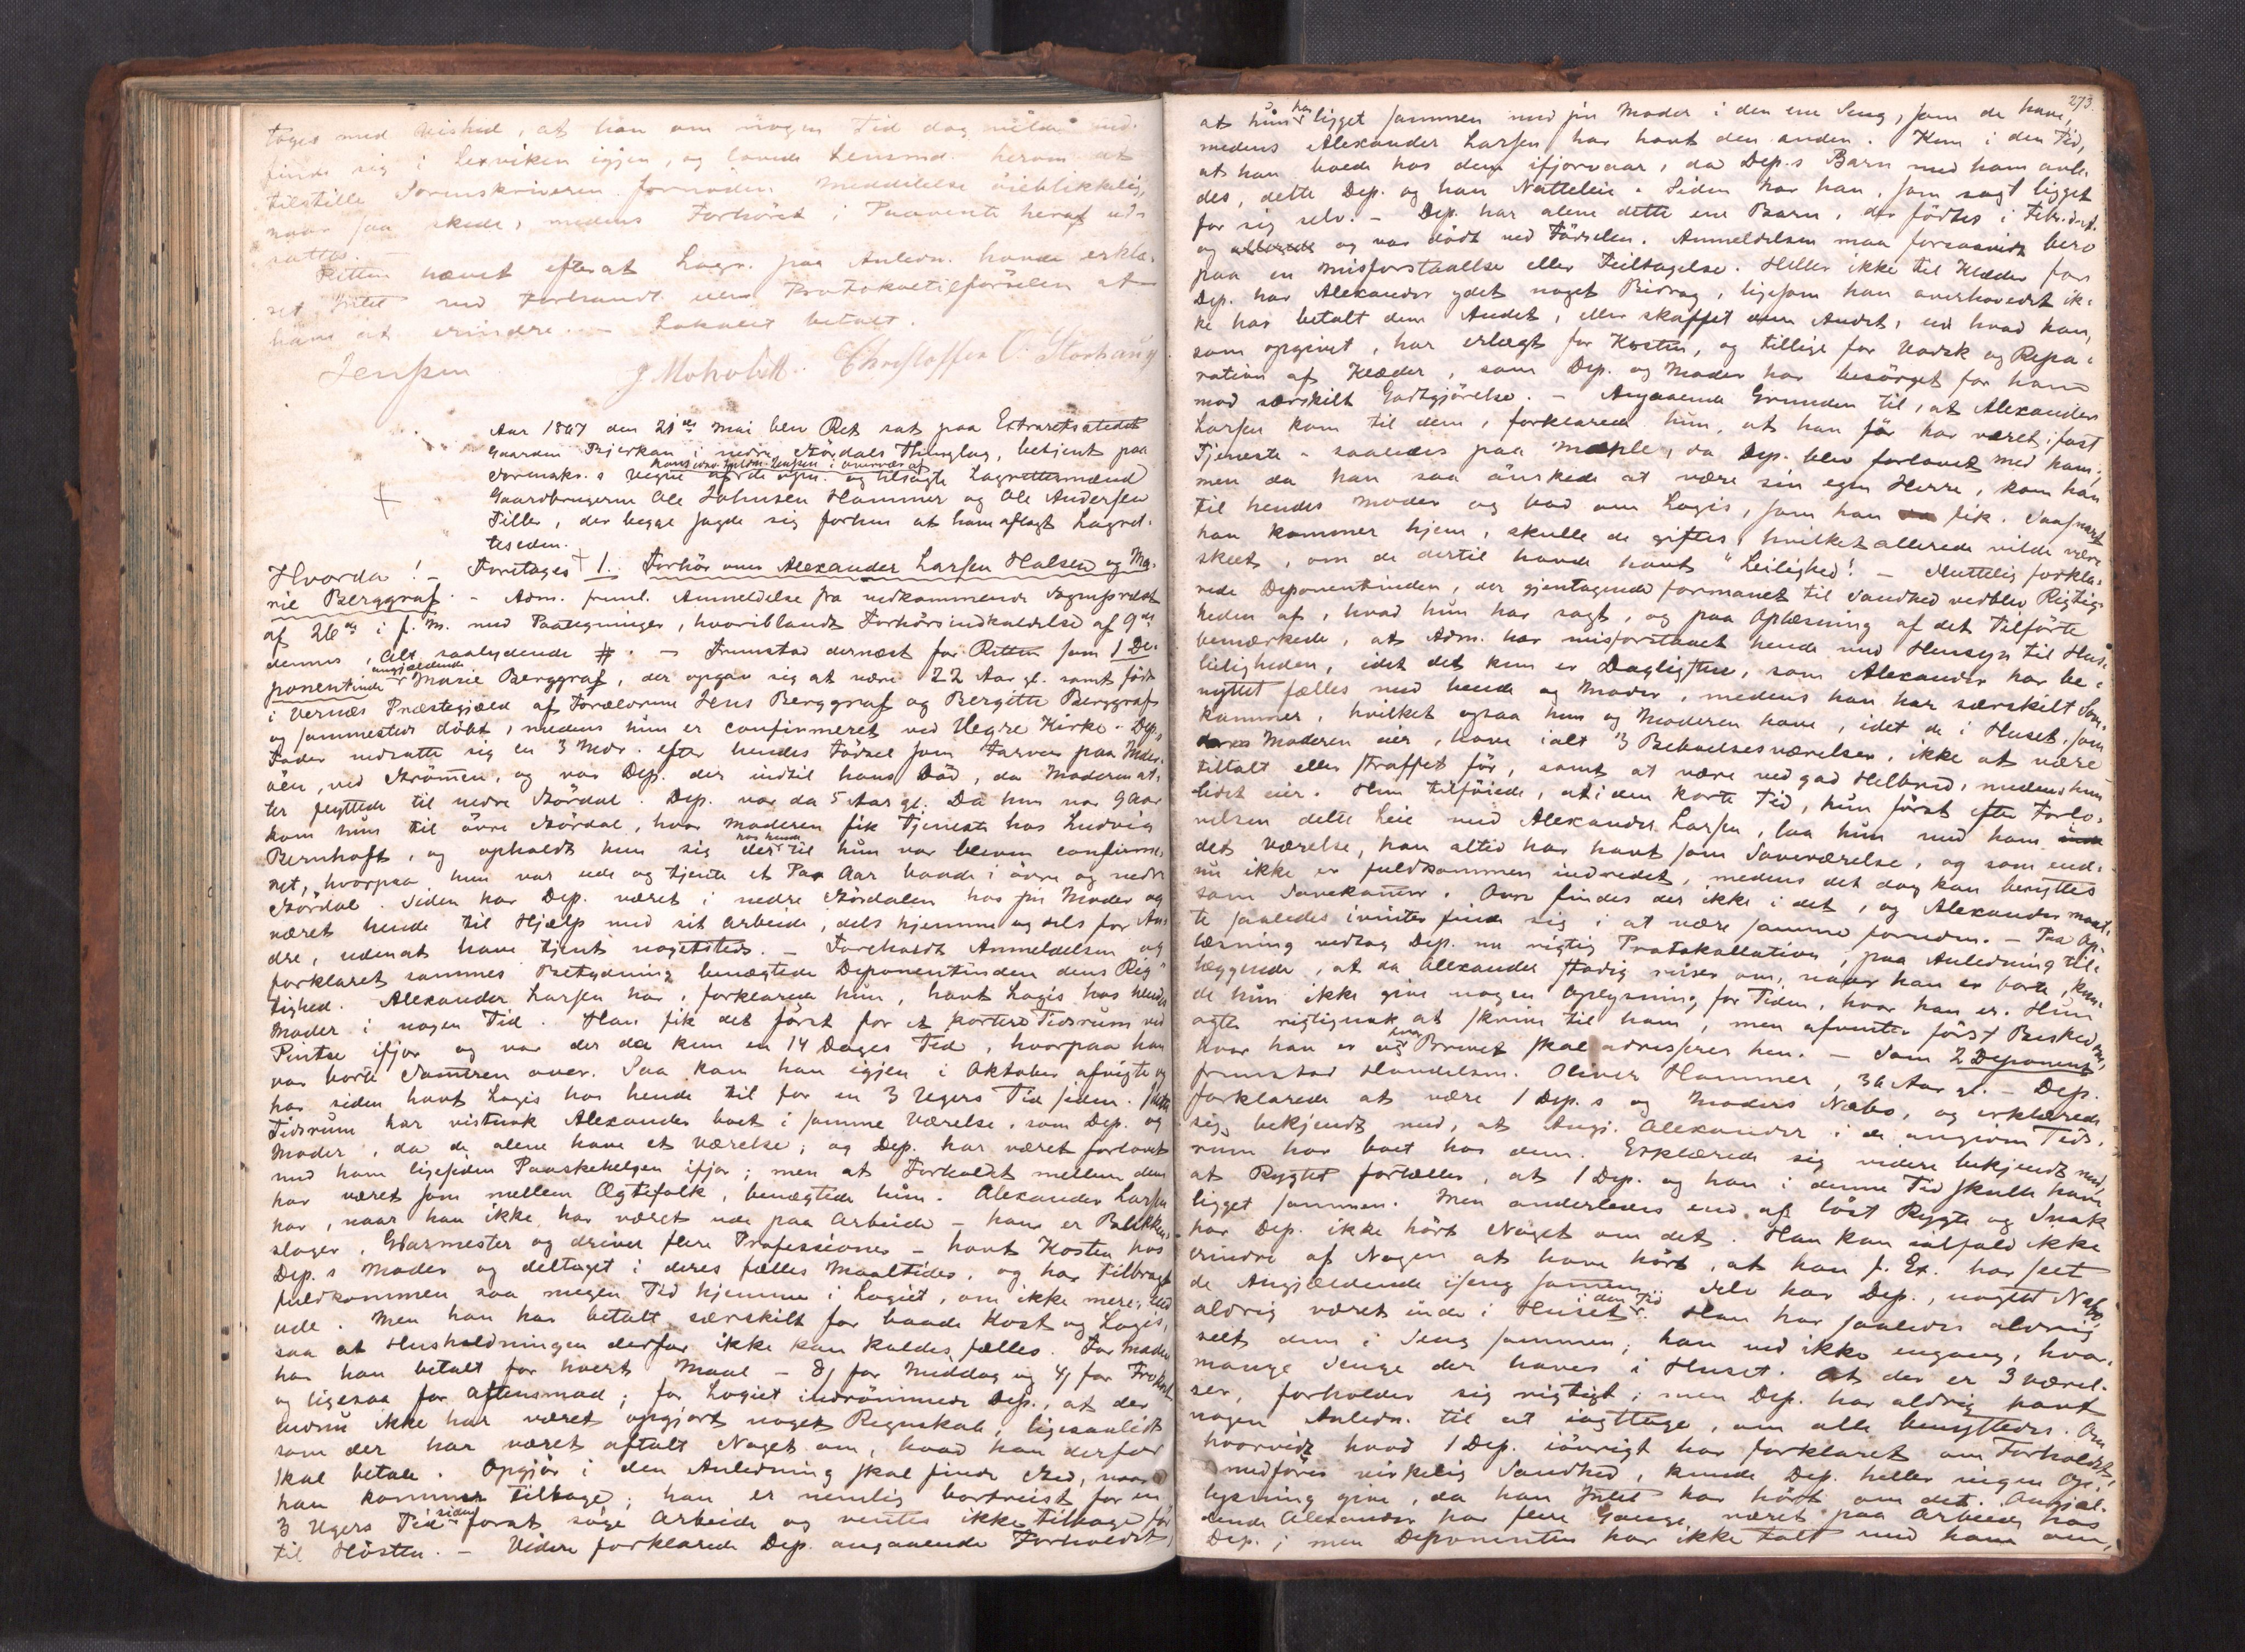 toges med Vished, at han om nogen Tid dog vilde ind-
finde sig i Lexviken igjen, og lovede Lensmd. herom at
tilstille Sorenskriveren fornøden Meddelelse øieblikkelig,
naar saa skede, medens Forhøret i Paavente heraf ud-
sattes. -
Retten hævet efterat Lagr. paa Anledn. havde erklæ-
ret Intet ved Forhandl. eller Protokoltilførselen at
have at erindre. - Lokalet betalt.
Jenssen J Moholdt. Christoffer O. Storhaug
Aar 1867 den 21de Mai blev Ret sat paa Extraretsstedet
Gaarden Bjerkan i nedre Størdals Thinglag, betjent paa
Sorenskr.s Vegne af hans edsv. Fuldm. Jenssen i Overvær af de opn. og tilsagte Lagrettesmænd
Gaardbrugerne Ole Johnsen Hammer og Ole Andersen
Tiller, der begge sagde sig forhen at have aflagt Lagret-
teseden.
Hvorda! - Foretages + 1. Forhør over Alexander Larsen Halsen og Ma-
rie Berggraf. - Adm. freml. Anmeldelse fra vedkommende Sognepræst
af 26de i f. M. med Paategninger, hvoriblandt Forhørsindkaldelse af 9de
dennes, Alt saalydende #. - Fremstod dernæst for Retten som 1 De-
ponentinde angjældende Marie Berggraf, der opgav sig at være 22 Aar gl. samt født
i Vernæs Præstegjæld af Forældrene Jens Berggraf og Bergitte Berggraf
og sammesteds døbt, medens hun er confirmeret ved Hegre Kirke. - Dep.s
Fader nedsatte sig en 3 Mdr. efter hendes Fødsel som Farver paa Inder-
øen, ved Strømen, og var Dep. der indtil hans Død, da Moderen at-
ter flyttede til nedre Størdal. Dep. var da 5 Aar gl. Da hun var 9 Aar
kom hun til øvre Størdal, hvor Moderen fik Tjeneste hos Ludvig
Bernhoft, og opholdt hun sig der hos hende til hun var bleven confirme-
ret, hvorpaa hun var ude og tjente et Par Aar baade i øvre og nedre
Størdal. Siden har Dep. været i nedre Størdalen hos sin Moder og
været hende til Hjælp med sit Arbeide, dels hjemme og dels for An-
dre, udenat have tjent nogetsteds. - Foreholdt Anmeldelsen og
forklaret sammes Betydning benægtede Deponentinden dens Rig-
tighed. Alexander Larsen har, forklarede hun, havt Logis hos hendes
Moder i nogen Tid. Han fik det først for et kortere Tidsrum ved
Pintse ifjor og var der da kun en 14 Dages Tid, hvorpaa han
var borte Somren over. Saa kom han igjen i Oktober afvigte og
har siden havt Logis hos hende til for en 3 Ugers Tid siden. I dette
Tidsrum har vistnok Alexander boet i samme Værelse, som Dep. og
Moder, da de alene have et Værelse; og Dep. har været forlovet
med ham ligesiden Paaskehelgen ifjor; men at Forholdet mellem dem
har været som mellem Ægtefolk, benægtede hun. Alexander Larsen
har, naar han ikke har været ude paa Arbeide - han er Blikken-
slager, Glarmester og driver flere Professioner - havt Kosten hos
Dep.s Moder og deltaget i deres fælles Maaltider, og har tilbragt
fuldkommen saa megen Tid hjemme i Logiet, om ikke mere, end
ude. Men han har betalt særskilt for baade Kost og Logis,
saa at Husholdningen derfor ikke kan kaldes fælles. For Maden
har han betalt for hvert Maal - 8 ß for Middag og 4 ß for Frokost
og ligesaa for Aftensmad; for Logiet indrømmede Dep., at der
endnu ikke har været opgjort noget Regnskab, ligesaalidt
som der har været aftalt Noget om, hvad han derfor
skal betale. Opgjør i den Anledning skal finde Sted, naar
han kommer tilbage; han er nemlig bortreist for en
3 Ugers Tid siden forat søge Arbeide og ventes ikke tilbage før
til Høsten. - Videre forklarede Dep. angaaende Forholdet,
273.
at hun har ligget sammen med sin Moder i den ene Seng, som de have,
medens Alexander Larsen har havt den anden. Kun i den Tid,
at han boede hos dem ifjorvaar, da Dep.s Barn med ham avle-
des, delte Dep. og han Natteleie. Siden har han, som sagt ligget
for sig selv. - Dep. har alene dette ene Barn, der fødtes i Febr. d.A.
og allerede og var dødt ved Fødselen. Anmeldelsen maa forsaavidt bero
paa en Misforstaaelse eller Feiltagelse. Heller ikke til Klæder for
Dep. har Alexander ydet noget Bidrag, ligesom han overhovedet ik-
ke har betalt dem Andet, eller skaffet dem Andet, end hvad han,
som opgivet, har erlagt for Kosten, og tillige for Vadsk og Repa-
ration af Klæder, som Dep. og Moder har besørget for ham
mod særskilt Godtgjørelse. - Angaaende Grunden til, at Alexander
Larsen kom til dem, forklarede hun, at han før har været i fast
Tjeneste - saaledes paa Mæhle, da Dep. blev forlovet med ham;
men da han saa ønskede at være sin egen Herre, kom han
til hendes Moder og bad om Logis, som han fik. Saasnart
han kommer hjem, skulle de giftes, hvilket allerede vilde være
skeet, om de dertil havde havt "Leilighed! - Sluttelig forkla-
rede Deponentinden, der gjentagende formanet til Sandhed vedblev Rigtig-
heden af, hvad hun har sagt, og paa Oplæsning af det Tilførte
bemærkede, at Adm. har misforstaaet hende med Hensyn til Hus-
leiligheden, idet det kun er Dagligstue, som Alexander har be-
nyttet fælles med hende og Moder, medens han har særskilt Sove-
kammer, hvilket ogsaa hun og Moderen have, idet de i Huset, som
Moderen eier, have ialt 3 Beboelsesværelser, ikke at være
tiltalt eller straffet før, samt at være ved god Helbred, medens hun
Intet eier. Hun tilføiede, at i den korte Tid, hun først efter Forlo-
velsen delte Leie med Alexander Larsen, laa hun med ham
det Værelse, han altid har havt som Soveværelse, og som end-
nu ikke er fuldkommen indredet, medens det dog kan benyttes
som Sovekamer. Ovn findes der ikke i det, og Alexander maat-
te saaledes ivinter finde sig i at være samme foruden. - Paa Op-
læsning vedtog Dep. nu rigtig Protokollation, paa Anledning til-
læggende, at da Alexander stadig reiser om, naar han er borte, kun-
de hun ikke give nogen Oplysning for Tiden, hvor han er. Hun
agter rigtignok at skrive til ham, men afventer først Besked om,
hvor han er og hvor Brevet skal adresseres hen. - Som 2 Deponent
fremstod Handelsm. Oliver Hammer, 36 Aar gl. - Dep.
forklarede at være 1 Dep.s og Moders Nabo, og erklærede
sig bekjendt med, at Angj. Alexander i de angivne Tids-
rum har boet hos dem. Erklærede sig videre bekjendt med,
at Rygtet fortæller, at 1 Dep. og han i denne Tid skulle have
ligget sammen. Men anderledes end af løst Rygte og Snak
har Dep. ikke hørt Noget om det. Han kan ialfald ikke
erindre af Nogen at have hørt, at han f. Ex. har seet
de Angjældende iseng sammen. Selv har Dep., uagtet Nabo,
aldrig været inde i Huset i den Tid. Han har saaledes aldrig
seet dem i Seng sammen; han ved ikke engang, hvor-
mange Senge der haves i Huset. At der er 3 Værel-
ser, forholder sig rigtigt; men Dep. har aldrig havt
nogen Anledn. til at iagttage, om alle benyttedes. Om
hvorvidt hvad 1 Dep. iøvrigt har forklaret om Forholdet,
medfører virkelig Sandhed, kunde Dep. heller ingen Op-
lysning give, da han Intet har hørt om det. Angjæl-
dende Alexander har flere Gange været paa Arbeide hos
Dep.; men Deponenten har ikke talt med ham om,